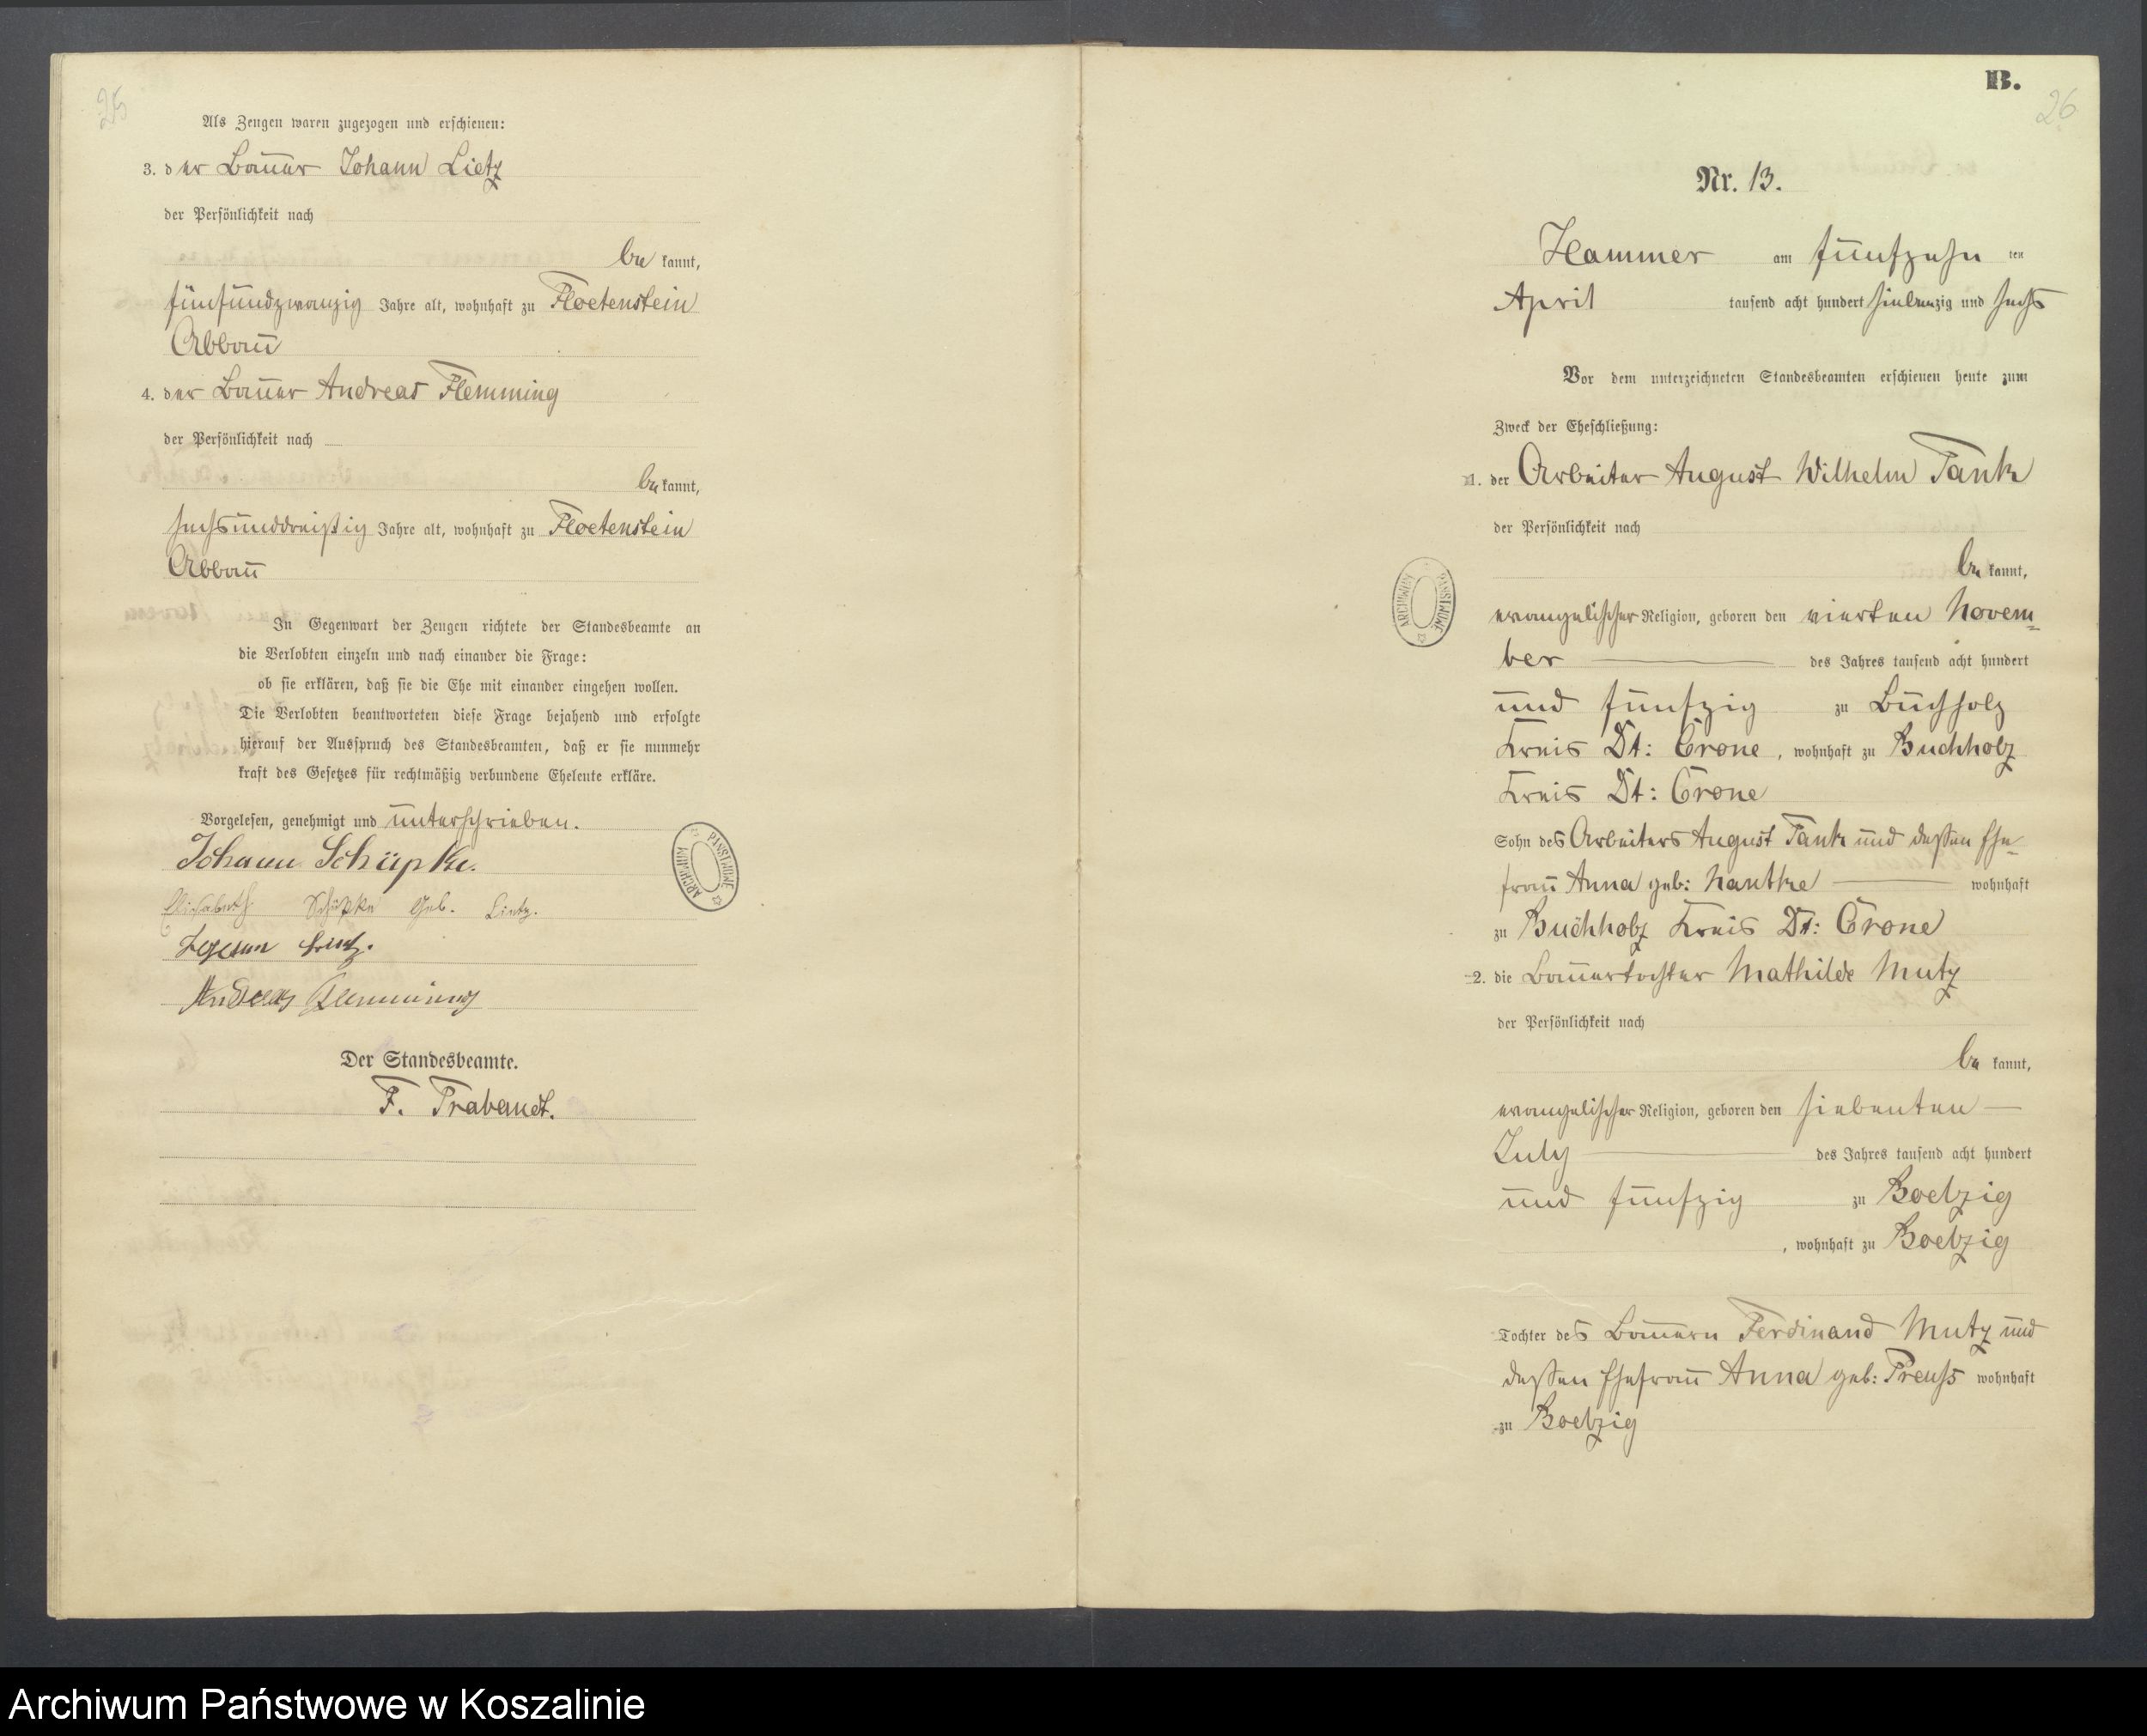 25
Als Zeugen waren zugezogen und erschienen:
3. der Bauer Johann Lietz
der Persönlichkeit nach
be kannt,
fünfundzwanzig Jahre alt, wohnhaft zu Floetenstein
Abbau
4. der Bauer Andreas Flemming
der Persönlichkeit nach
be kannt,
sechsunddreißig Jahre alt, wohnhaft zu Floetenstein
Abbau
In Gegenwart der Zeugen richtete der Standesbeamte an
die Verlobten einzeln und nach einander die Frage:
ob sie erklären, daß sie die Ehe mit einander eingehen wollen.
Die Verlobten beantworteten diese Frage bejahend und erfolgte
hierauf der Ausspruch des Standesbeamten, daß er sie nunmehr
kraft des Gesetzes für rechtmäßig verbundene Eheleute erkläre.
Vorgelesen, genehmigt und unterschrieben.
Johann Schüpke.
Elisabeth Schüpke Geb. Lietz.
Lietz.
Andreas Flemming
Der Standesbeamte.
F. Trabandt.
ARCHIWUM PAŃSTWOWE
B.
26
Nr. 13.
Hammer am fünfzehn ten
April tausend acht hundert siebenzig und sechs
Vor dem unterzeichneten Standesbeamten erschienen heute zum
Zweck der Eheschließung:
1. der Arbeiter August Wilhelm Tank
der Persönlichkeit nach
be kannt,
evangelischer Religion, geboren den vierten Novem=
ber des Jahres tausend acht hundert
und fünfzig zu Buchholz
Kreis Dt: Crone, wohnhaft zu Buchholz
Kreis Dt: Crone
Sohn des Arbeiters August Tank und dessen Ehe=
frau Anna geb: Nantke wohnhaft
zu Buchholz Kreis Dt: Crone
2. die Bauertochter Mathilde Mutz
der Persönlichkeit nach
be kannt,
evangelischer Religion, geboren den siebenten
July des Jahres tausend acht hundert
und fünfzig zu Boelzig
, wohnhaft zu Boelzig
Tochter des Bauern Ferdinand Mutz und
dessen Ehefrau Anna geb: Preuss wohnhaft
zu Boelzig
ARCHIWUM PAŃSTWOWE
Archiwum Państwowe w Koszalinie